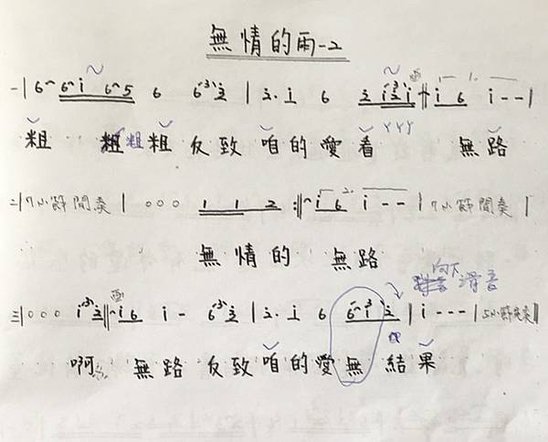 無情的雨-2
一| 6 6 i 6 5 6 6 3 2 | 2. i 6 2 i 2 i | i 6 i - - |
粗 粗 粗 反致 咱的愛看 無路
二| 7小節間奏 | 0 0 0 1 1 2 :| i 6 i - - | 7小節間奏 |
無情的 無路
向下滑音
三| 0 0 0 i 3 2 | i 6 i - 6 3 2 | 2. i 6 6 i 2 | i - - - | 5小節尾奏 |
啊 無路反致咱的愛無結果